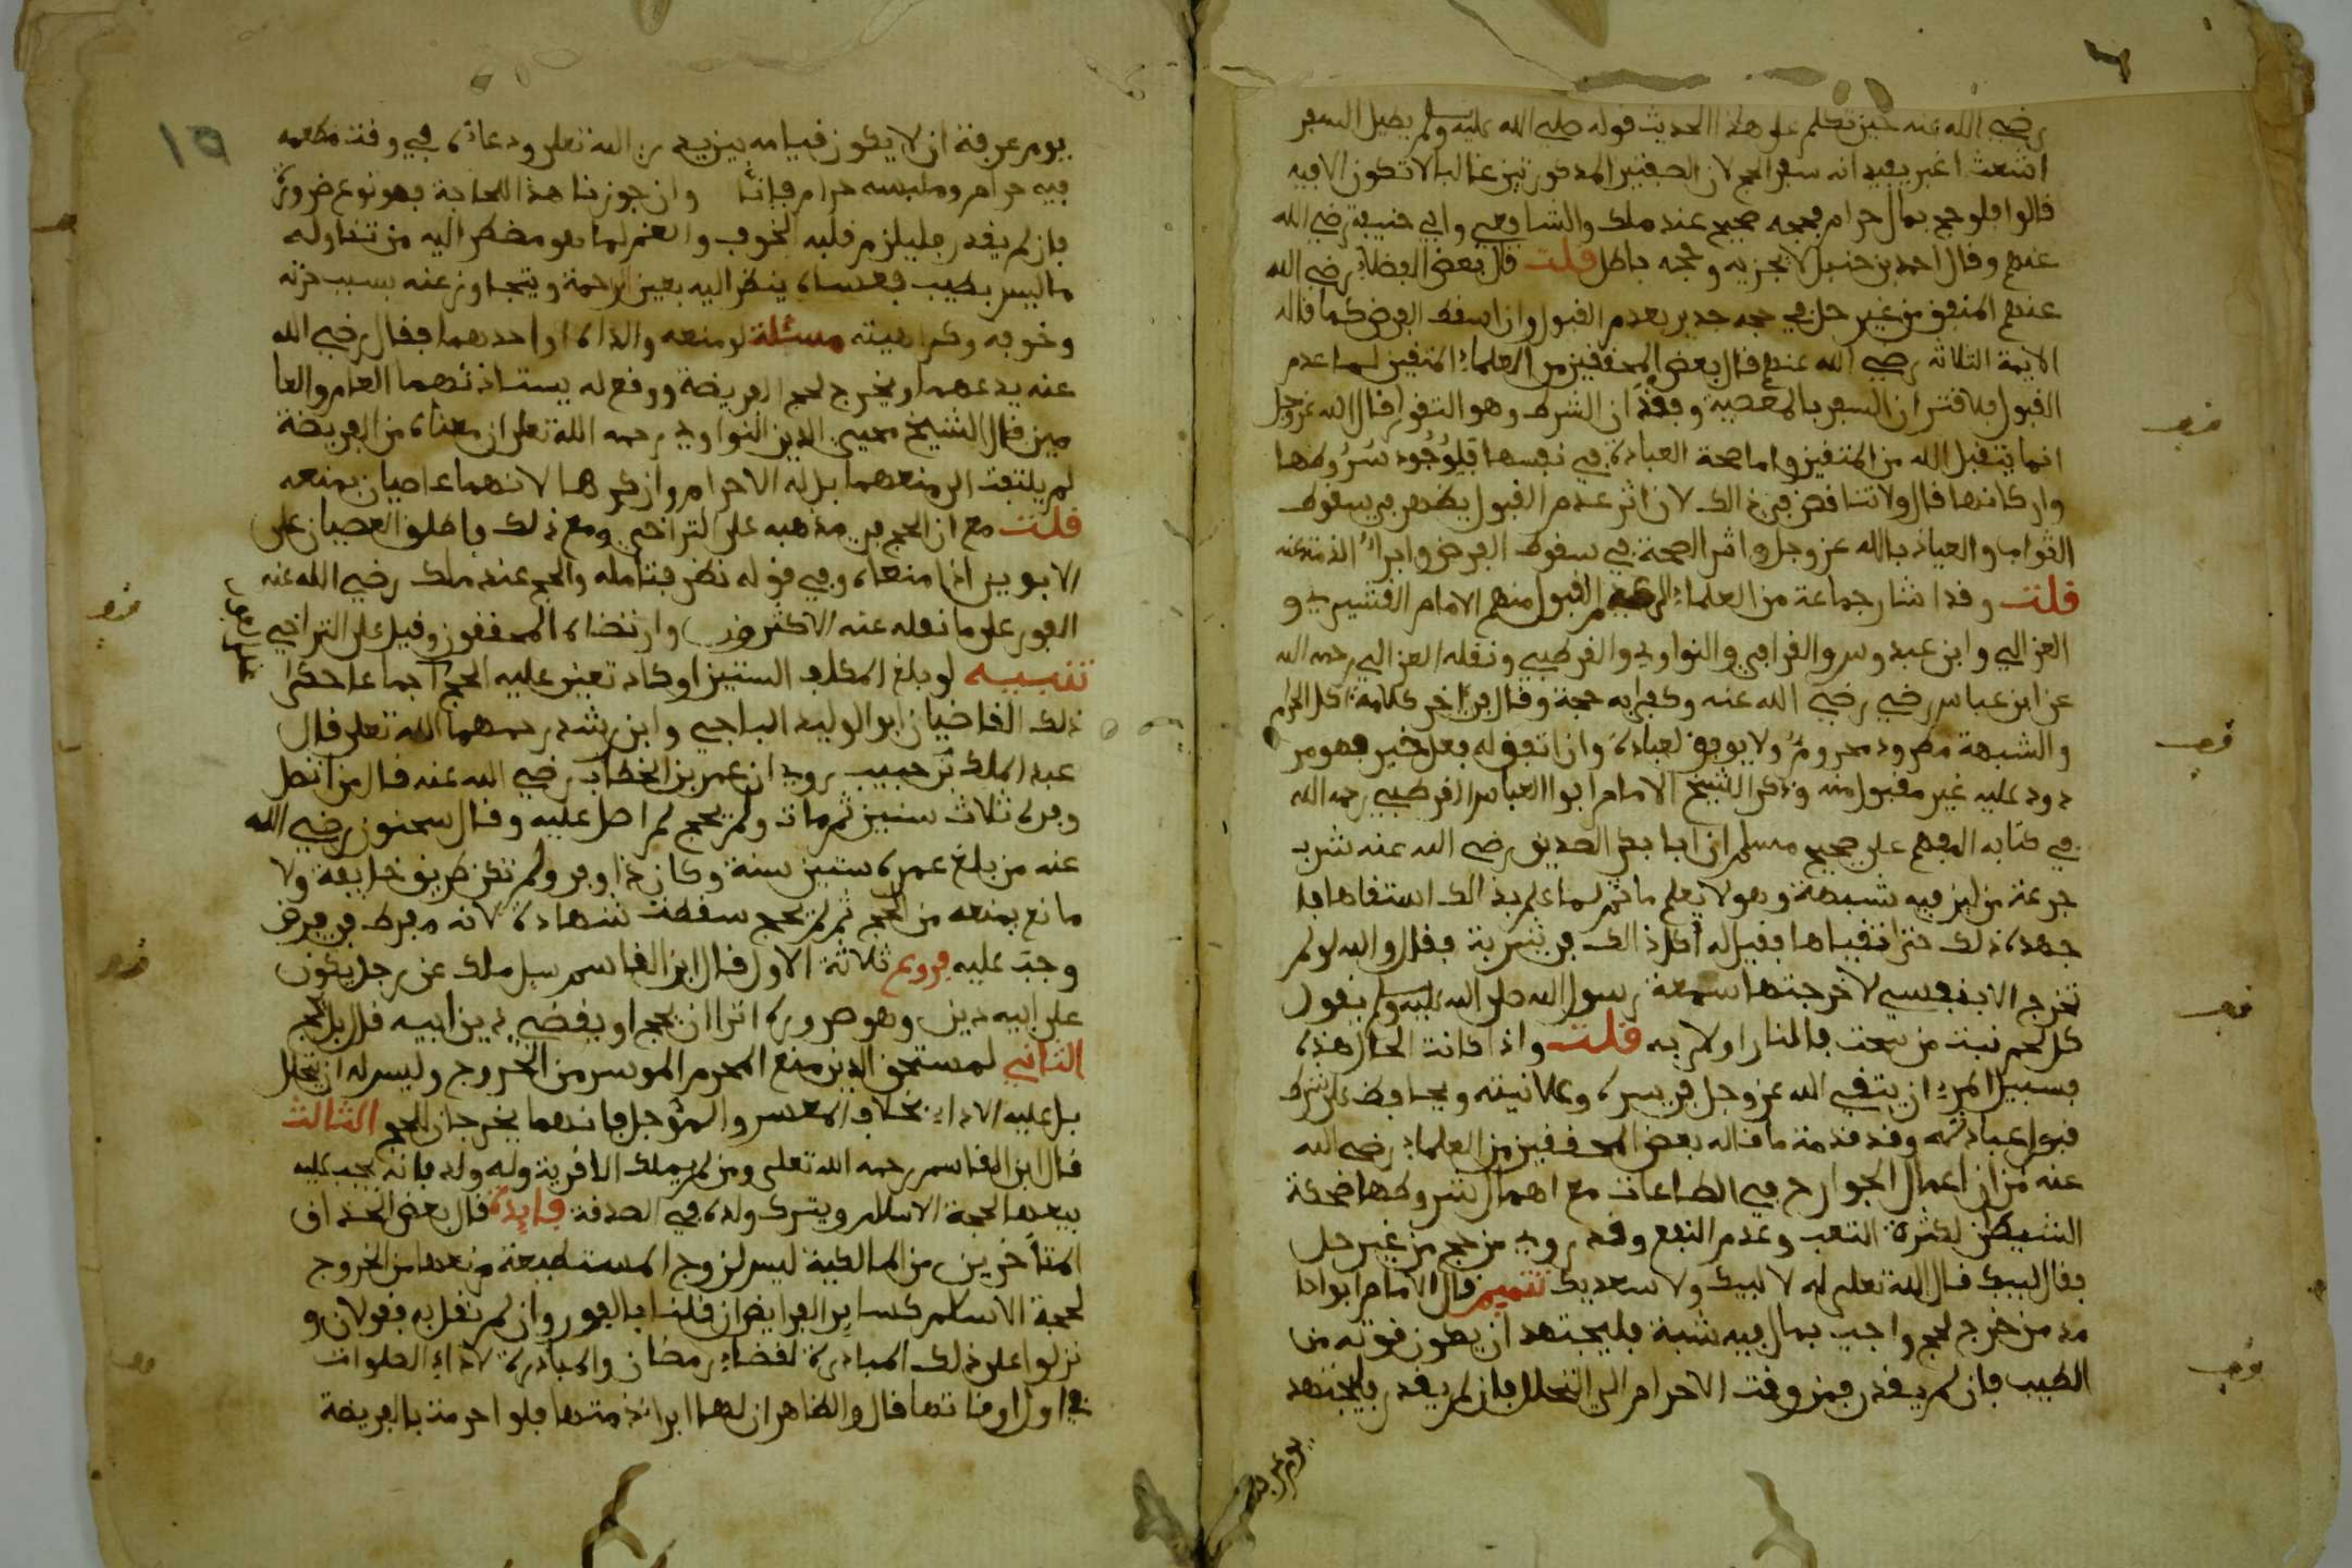 رضي الله عنه حين تكلم على هذا الحديث قوله صلى الله عليه وسلم يطيل السفر
اشعث اغبر يفيد انه سفر الحج لان الصفتين المذكورتين غالبا لا تكون الا فيه
قالوا فلو حج بمال حرام فحجه صحيح عند ملك والشافعي وابي حنيفة رضي الله
عنهم وقال احمد بن حنبل لا يجزيه وحجه باطل قلت قال بعض الفضلاء رضي الله
عنهم المنفق من غير حل في حجه جدير بعدم القبول وان اسقط الفرض كما قاله
الايمة الثلاثه رضي الله عنهم قال بعض المحققين من العلماء المتقين لما عدم
القبول فلاقتران السفر بالمعصية وفقدان الشرط وهو التقوى قال الله عز وجل
انما يتقبل الله من المتقين واما صحة العبادة في نفسها فلوجود شروطها
واركانها قال ولا تناقض في ذالك لان اثر عدم القبول يظهر في سقوط
الثواب والعياذ بالله عز وجل واثر الصحة في سقوط الفرض وابراء الذمة منه
قلت وقد اشار جماعة من العلماء الى عدم القبول منهم الامام القشيري و
الغزالي وابن عبدوس والقرافي والنواوي والقرطبي ونقله الغزالي رحمه الله
عن ابن عباس رضي رضي الله عنه وكفى به حجة وقال في اخر كلامه اكل الحرام
والشبهة مطرود محروم ولا يوفق لعبادة وان اتفق له فعل خير فهو مر
دود عليه غير مقبول منه وذكر الشيخ الامام ابوا العباس القرطبي رحمه الله
في كتابه المفهم على صحيح مسلم ان ابا بكر الصديق رضي الله عنه شرب
جرعة من لبن فيه شبهة وهو لا يعلم ما ثم لما علم بذالك استقاها فا
جهده ذلك حتى تقياها فقيل له اكل ذالك في شربة فقال والله لو لم
تخرج الا بنفسي لاخرجتها سمعت رسول الله صلى الله عليه وسلم يقول
كل لحم نبت من سحت فالنار اولى به قلت واذا كانت الحال هذه
فسبيل المرء ان يتقي الله عز وجل في سره وعلانيته ويحافظ على شرط
قبول عبادته وقد قدمنا ما قاله بعض المحققين من العلماء رضي الله
عنه من ان اعمال الجوارح في الطاعات مع اهمال شروطها ضحكة
الشيطن لكثرة التعب وعدم النفع وقد روي من حج من غير حل
فقال لبيك قال الله تعلى له لا لبيك ولا سعديك تتميم قال الامام ابو حا
مد من خرج لحج واجب بمال فيه شبهة فليجتهد ان يكون قوته من
الطيب فان لم يقدر فمن وقت الاحرام الى التحلل فان لم يقدر فليجتهد
يوم عرفة
يوم عرفة ان لا يكون قيامه بين يدي الله تعلى ودعاؤه في وقت مطعمه
فيه حرام وملبسه حرام فإنا وان جوزنا هذا للحاجة فهو نوع ضرورة
فان لم يقدر فليلزم قلبه الخوف والغم لما هو مضطر اليه من تناوله
ما ليس بطيب فعساه ينظر اليه بعين الرحمة ويتجاوز عنه بسبب حزنه
وخوفه وكراهيته مسئلة لو منعه والداه او احدهما فقال رضي الله
عنه يدعهما ويخرج لحج الفريضة ووقع له يستاذنهما العام والعا
مين قال الشيخ محيي الدين النواوي رحمه الله تعلى ان معناه من الفريضة
لم يلتفت الى منعهما بل له الاحرام وان كرها لانهما عاصيان بمنعه
قلت مع ان الحج في مذهبه على التراخي ومع ذلك واطلق العصيان على
الابوين اذا منعاه وفي قوله نظر فتامله والحج عند ملك رضي الله عنه
الفور على ما نقله عنه الاكثرون وارتضاه المحققون وقيل على التراخي
تنبيه لو بلغ المكلف الستين او كاد تعين عليه الحج اجماعا حكى
ذلك القاضيان ابو الوليد الباجي وابن رشد رحمهما الله تعلى قال
عبد الملك بن حبيب روي ان عمر بن الخطاب رضي الله عنه قال من اتصل
وفره ثلاث سنين ثم مات ولم يحج لم اصل عليه وقال سحنون رضي الله
عنه من بلغ عمره ستين سنة وكان ذا وفر ولم تكن طريق خايفة ولا
مانع يمنعه من الحج ثم لم يحج سقطت شهادته لانه مفرط في فرض
وجب عليه فروع ثلاثة الاول قال ابن القاسم سيل ملك عن رجل يكون
على ابيه دين وهو صرورة اترا ان يحج او يقضي دين ابيه قال بل يحج
الثاني لمستحق الدين منع المحرم الموسر من الخروج وليس له ان يتحلل
بل عليه الاداء بخلاف المعسر والمؤجل فانهما يخرجان للحج الثالث
قال ابن القاسم رحمه الله تعلى ومن لم يملك الا قرية وله ولد فانه يجب عليه
بيعها لحجة الاسلام ويترك ولده في الصدقة فايدة قال بعض الحذاق
المتأخرين من المالكية ليس لزوج المستطيعة منعها من الخروج
لحجة الاسلام كساير الفرايض ان قلنا بالفور وان لم نقل به فقولان و
نزلوا على ذلك المبادرة لقضاء رمضان والمبادرة لاداء الصلوات
في اول اوقاتها قال والظاهر ان لها ابراء ذمتها فلو احرمت بالفريضة